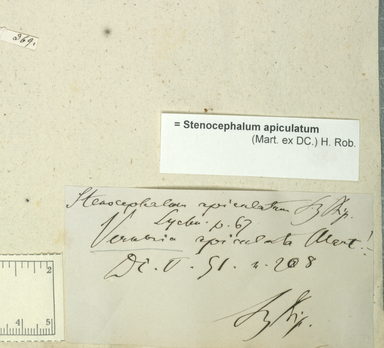 369.
= Stenocephalum apiculatum
(Mart. ex DC.) H. Rob.
Stenocephalum apiculatum Sz Bip.
p. 67
Vernonia apiculata Mart!
Dc. V. 51. n. 208
Sz Bip.
2
4 5